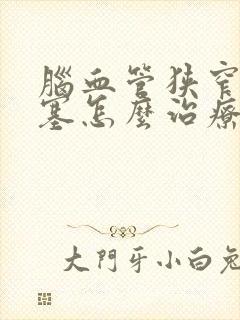 腦血管狹窄
塞怎麼治療
大門牙小白兔